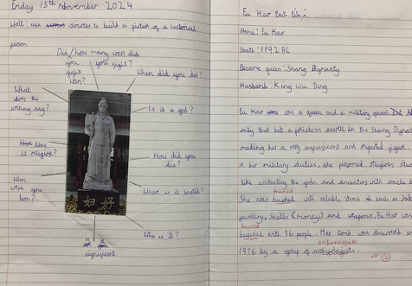 Friday 15th November 2024
Well use sources to build a picture of a historical
person
Did / how many wars did
you you fight?
fight
When did you die?
war?
What
does the
writing say?
Is it a god?
How was
it religion?
How did you
die?
When
were you
born?
What is it
Who is it?
significant
妇好
Fu Hao Fact File
Name: Fu Hao
Died: 1192 BC
Became queen: Shang Dynasty
Husband: King Wu Ding
Fu Hao was a queen and a military general. Not
only that but a priestess as well in the Shang Dynasty
making her a very significant and respected figure.
her military duties, she performed religious rituals
like contacting the gods and ancestors with oracle
buried
She was buried with valuable items such as jade
jewellery, shells (money) and weapons. Fu Hao was
buried
buried with 16 people. Her tomb was discovered in
1976 by a group of